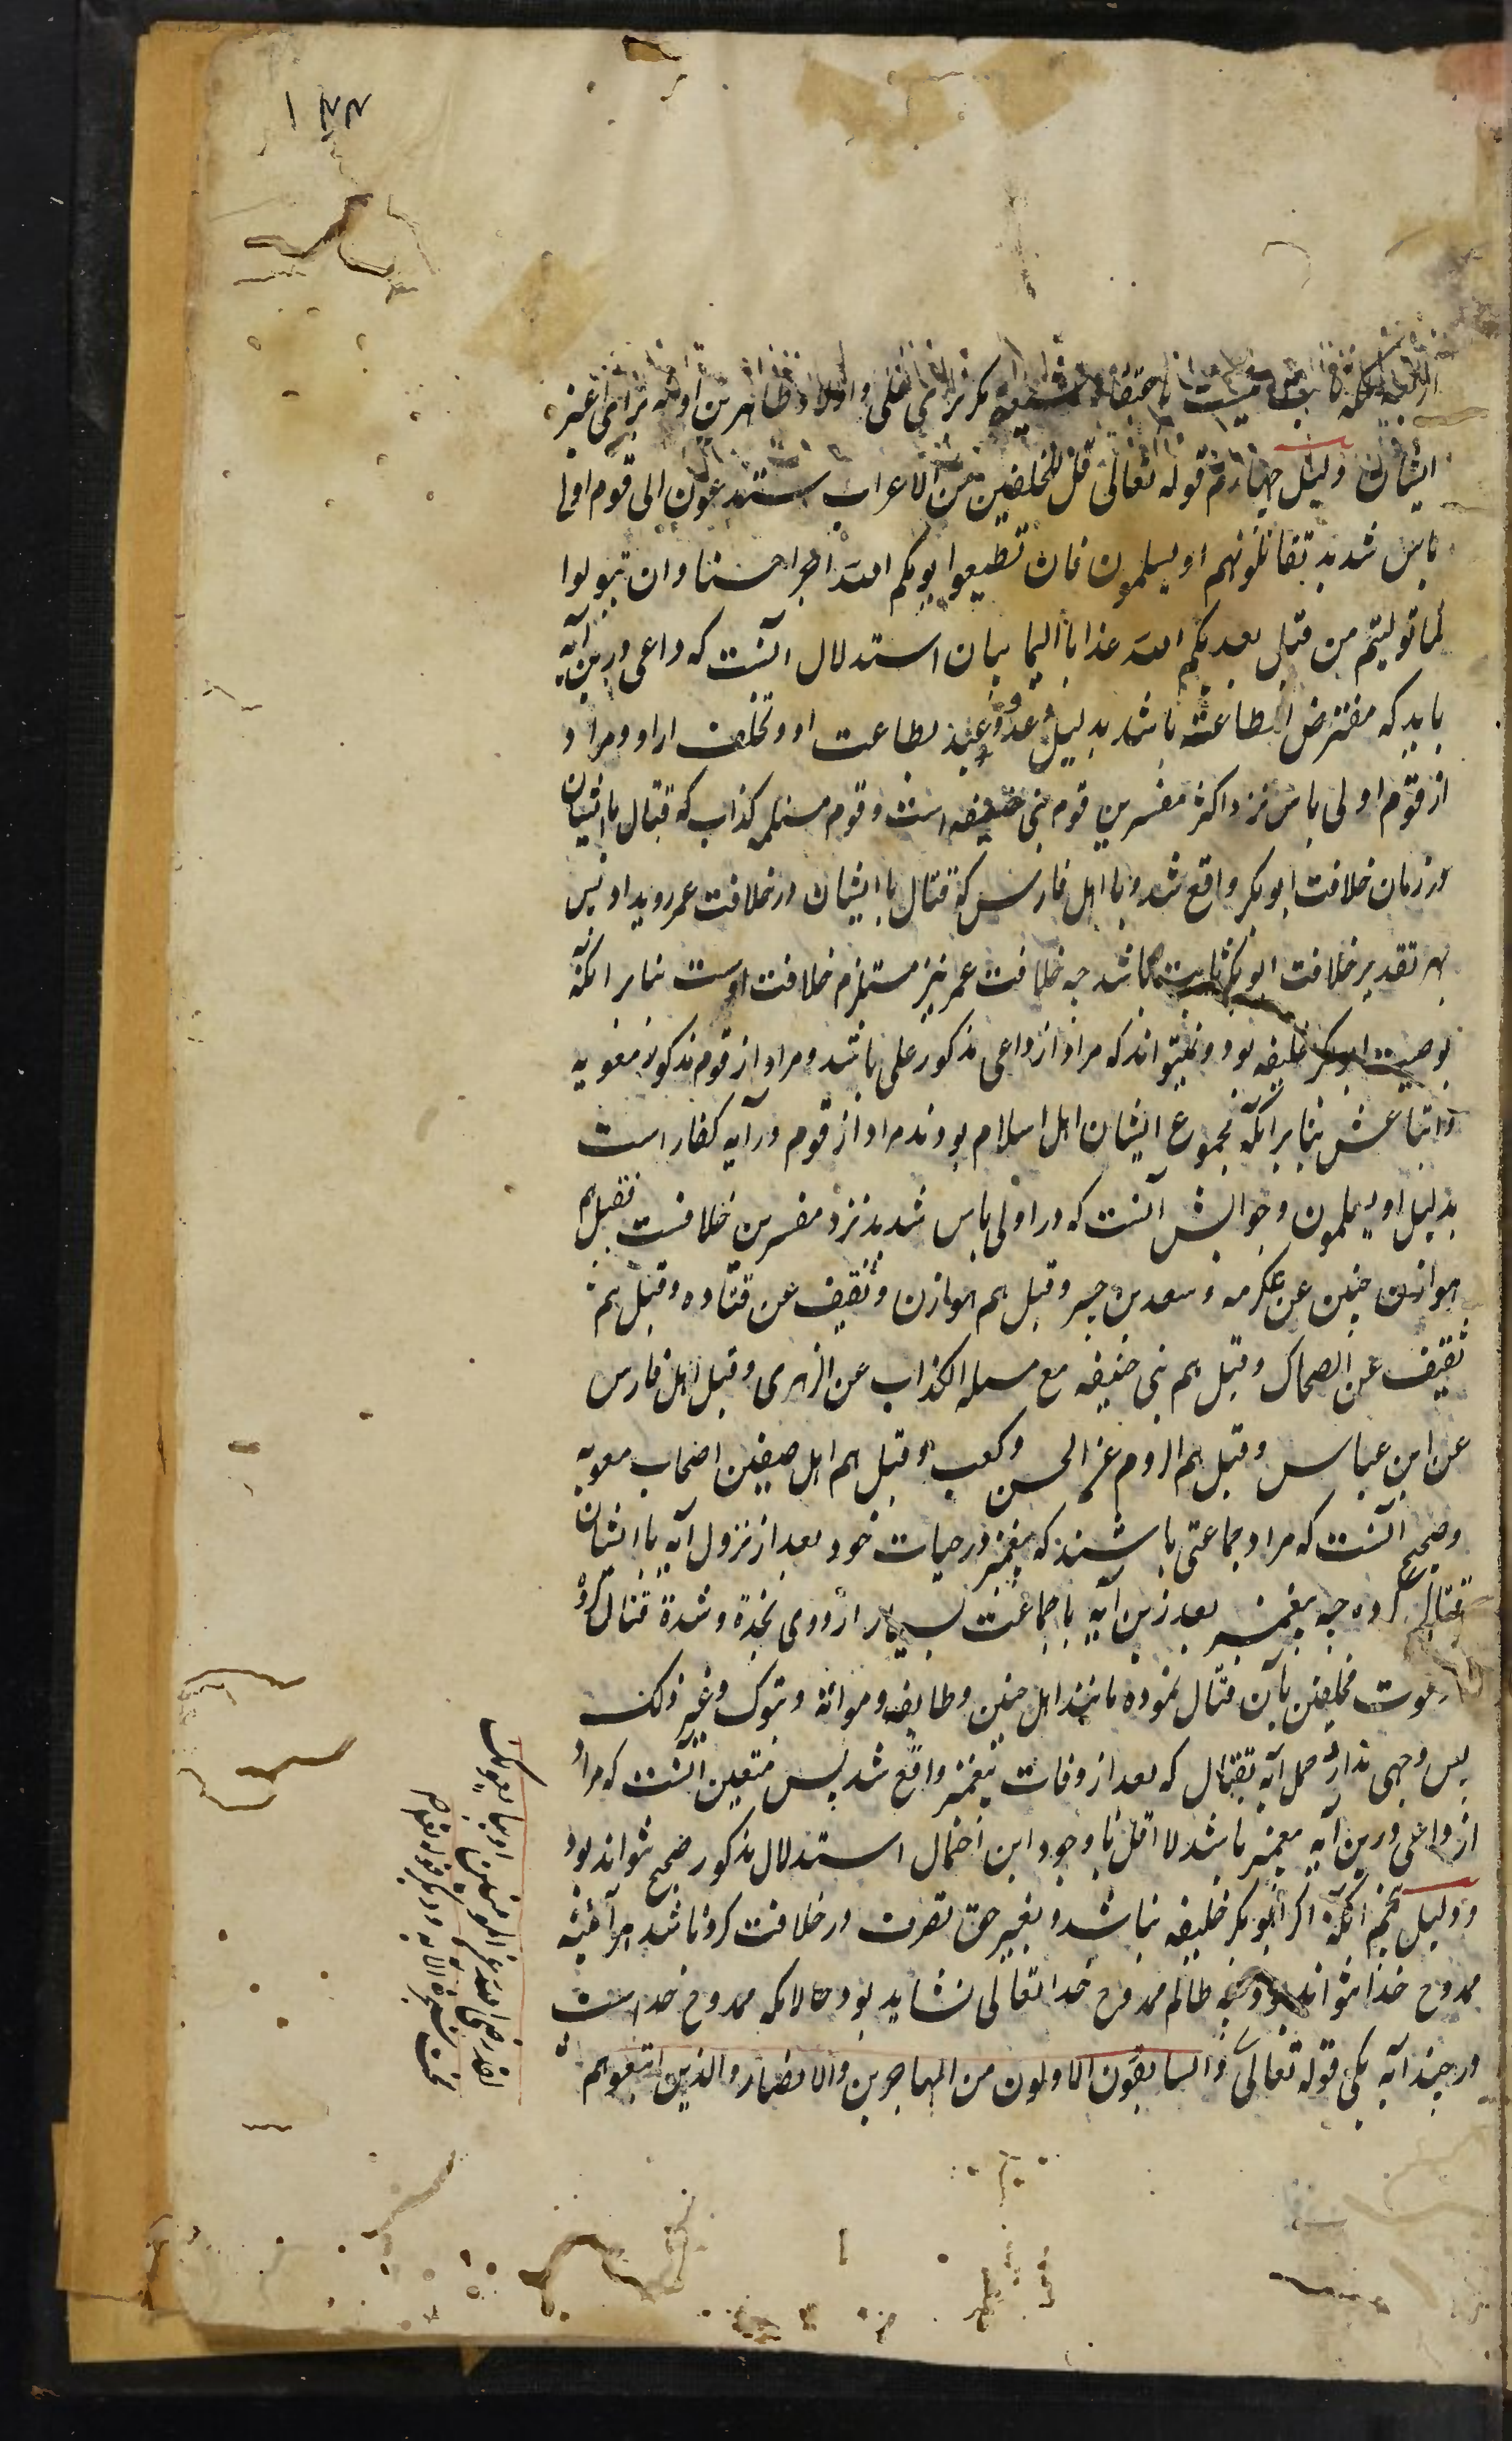 ۱۴۴
نیست باعتقاد شیعه مگر برای علی و اولاد طاهرین او نه برای غیر
ایشان دلیل چهارم قوله تعالی قل للمخلفین من الاعراب ستدعون الی قوم اولی
باس شدید تقاتلونهم او یسلمون فان تطیعوا یوتکم الله اجرا حسنا وان تتولوا
کما تولیتم من قبل یعذبکم الله عذابا الیما بیان استدلال آنست که داعی درین آیه
باید که مفترض الطاعته باشد بدلیل وعد و وعید بطاعت او و تخلف از او و مراد
از قوم اولی باس نزد اکثر مفسرین قوم بنی حنیفه است و قوم مسیلمه کذاب که قتال با ایشان
در زمان خلافت ابوبکر واقع شد و یا اهل فارس که قتال با ایشان در خلافت عمر روی داد پس
بهر تقدیر خلافت ابوبکر ثابت باشد چه خلافت عمر نیز مستلزم خلافت اوست بنابر آنکه
بوصیت ابوبکر خلیفه بود و نمیتواند که مراد از داعی مذکور علی باشد و مراد از قوم مذکور معویه
و اتباعش بنابر آنکه مجموع ایشان اهل اسلام بودند مراد از قوم در آیه کفار است
بدلیل او یسلمون و جوابش آنست که در اولی باس شدید نزد مفسرین خلافست فقیل هم
هوازن حنین عن عکرمه و سعد بن جبیر و قیل هم هوازن و ثقیف عن قتاده و قیل هم
ثقیف عن الضحاک و قیل هم بنی حنیفه مع مسیلمه الکذاب عن الزهری و قیل اهل فارس
عن ابن عباس و قیل هم الروم عن الحسن و کعب و قیل هم اهل صفین اصحاب معویه
و صحیح آنست که مراد جماعتی باشند که پیغمبر در حیات خود بعد از نزول آیه با ایشان
قتال کرده چه پیغمبر بعد زین آیه با جماعت بسیار از ذوی نجدة و شدة قتال کرد
دعوت مخلفین بآن قتال نموده مانند اهل حنین و طایف و موته و تبوک و غیر ذلک
پس وجهی ندارد حمل آیه بقتال که بعد از وفات پیغمبر واقع شد پس متعین آنست که مراد
از داعی درین آیه پیغمبر باشد لا اقل با وجود این احتمال استدلال مذکور صحیح نتواند بود
و دلیل پنجم آنکه اگر ابوبکر خلیفه نباشد و بغیر حق تصرف در خلافت کرده باشد هرآینه
ممدوح خدا نتواند بود چه ظالم ممدوح خدا تعالی نشاید بود و حالانکه ممدوح خداست
در چند آیه یکی قوله تعالی والسابقون الاولون من المهاجرین والانصار والذین اتبعوهم
لقد رضی الله عن المومنین اذ یبایعونک
تحت الشجرة الآیه و دیگر قوله تعالی